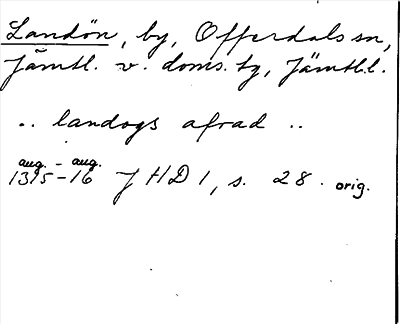 Landön, by, Offerdals sn,
Jämtl. v. doms. tg, Jämtl. l.
.. landogs afrad ..
aug. - aug.
1315-16 JHD 1, s. 28. orig.